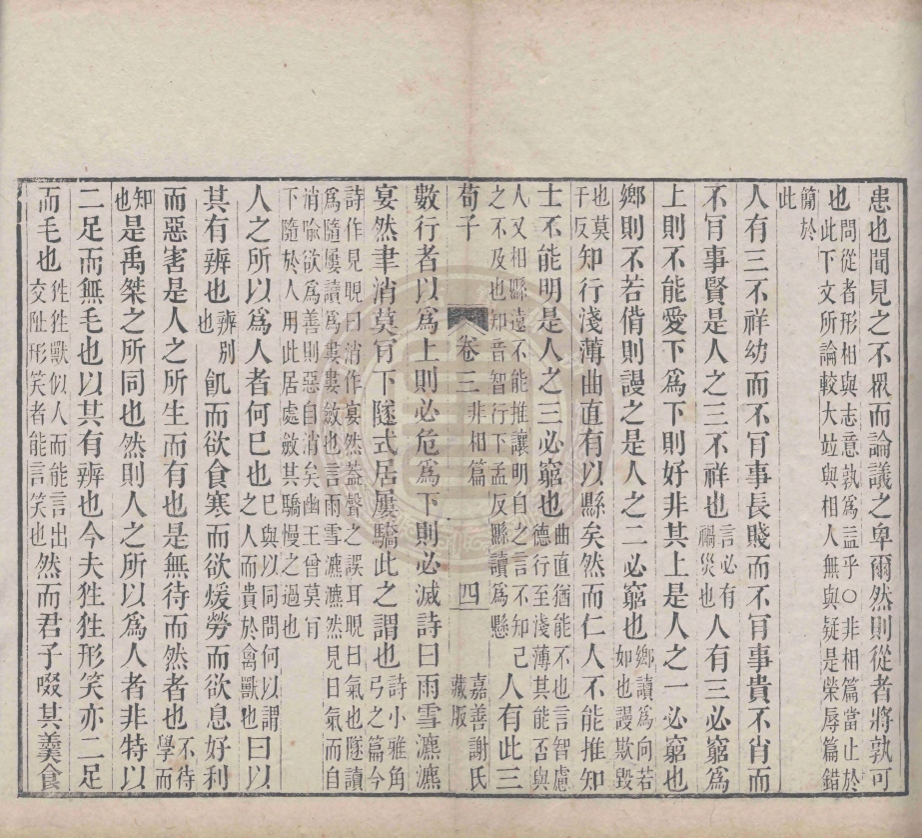 患也聞見之不眾而論議之卑爾然則從者將孰可
也
問從者形相與志意孰爲益乎○非相篇當止於
此下文所論較大竝與相人無與疑是榮辱篇錯
簡於
此
人有三不祥幼而不肎事長賤而不肎事貴不肖而
不肎事賢是人之三不祥也
言必有
禍災也
人有三必窮爲
上則不能愛下爲下則好非其上是人之一必窮也
鄉則不若偝則謾之是人之二必窮也
鄉讀爲向若
如也謾欺毀
也莫
干反
知行淺薄曲直有以縣矣然而仁人不能推知
士不能明是人之三必窮也
曲直猶能不也言智慮
德行至淺薄其能否與
人又相縣遠不能推讓明白之言不知己
之不及也知音智行下孟反縣讀爲懸
人有此三
荀子 卷三 非相篇 四
嘉善謝氏
藏版
數行者以爲上則必危爲下則必滅詩曰雨雪瀌瀌
宴然聿消莫肎下隧式居屢驕此之謂也
詩小雅角
弓之篇今
詩作見晛曰消作宴然蓋聲之誤耳晛日氣也隧讀
爲隨屢讀爲婁婁斂也言雨雪瀌瀌然見日氣而自
消喻欲爲善則惡自消矣幽王曾莫肎
下隨於人用此居處斂其驕慢之過也
人之所以爲人者何已也
已與以同問何以謂
之人而貴於禽獸也
曰以
其有辨也
辨別
也
飢而欲食寒而欲煖勞而欲息好利
而惡害是人之所生而有也是無待而然者也
不待
學而
知
也
是禹桀之所同也然則人之所以爲人者非特以
二足而無毛也以其有辨也今夫狌狌形笑亦二足
而毛也
狌狌獸似人而能言出
交阯形笑者能言笑也
然而君子啜其羹食